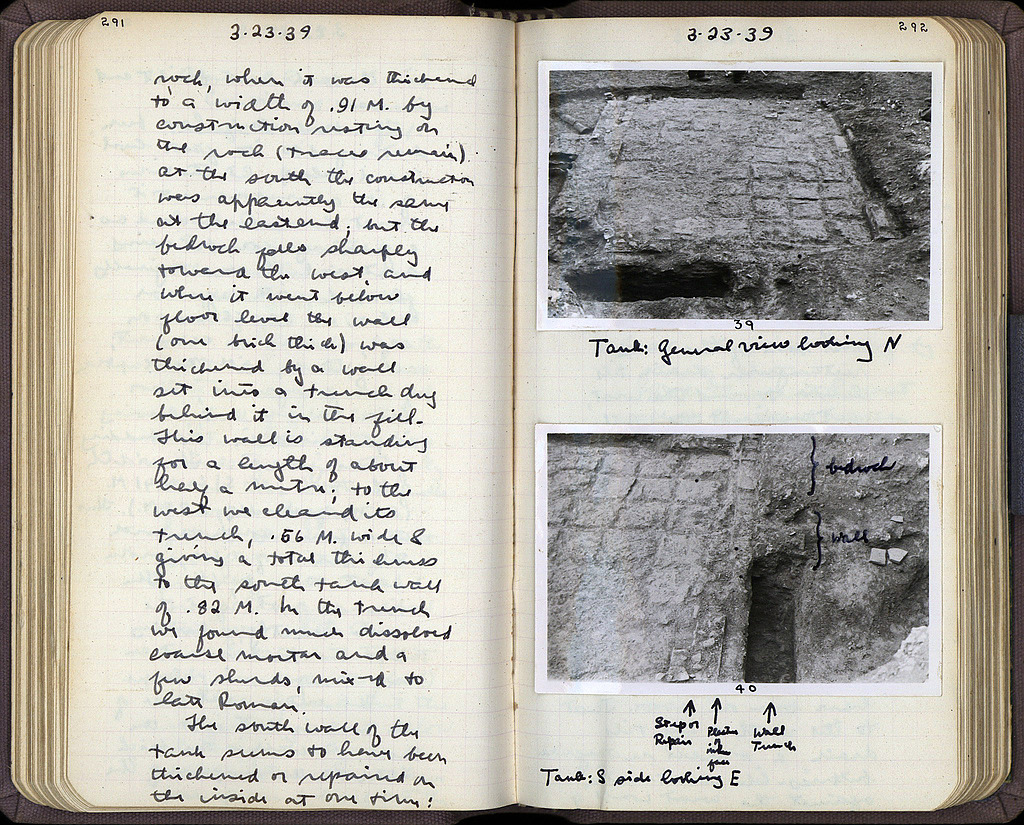 291
3·23·39
rock, when it was thickened
to a width of .91 M. by
construction resting on
the rock (traces remain).
at the south the construction
was apparently the same
at the east end, but the
bedrock falls sharply
toward the west, and
when it went below
floor level the wall
(one brick thick) was
thickened by a wall
set into a trench dug
behind it in the fill.
This wall is standing
for a length of about
half a metre; to the
west we cleared its
trench, .56 M. wide &
giving a total thickness
to the south tank wall
of .82 M. In the trench
we found much dissolved
coarse mortar and a
few sherds, mixed to
late Roman.
The south wall of the
tank seems to have been
thickened or repaired on
the inside at one time:
292
3·23·39
39
Tank: General view looking N
} bedrock
} wall
40
Step or
Repair
Plaster
of
inner
face
Wall
Trench
Tank: S side looking E